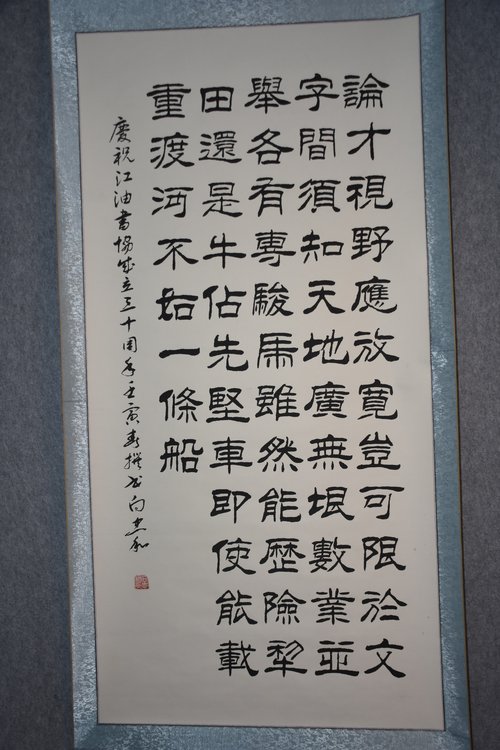 論才視野應放寬豈可限於文
字間須知天地廣無垠數業並
舉各有專駿馬雖然能歷險犁
田還是牛佔先堅車即使能載
重渡河不如一條船
慶祝江油書協成立三十周年壬寅春撰书向